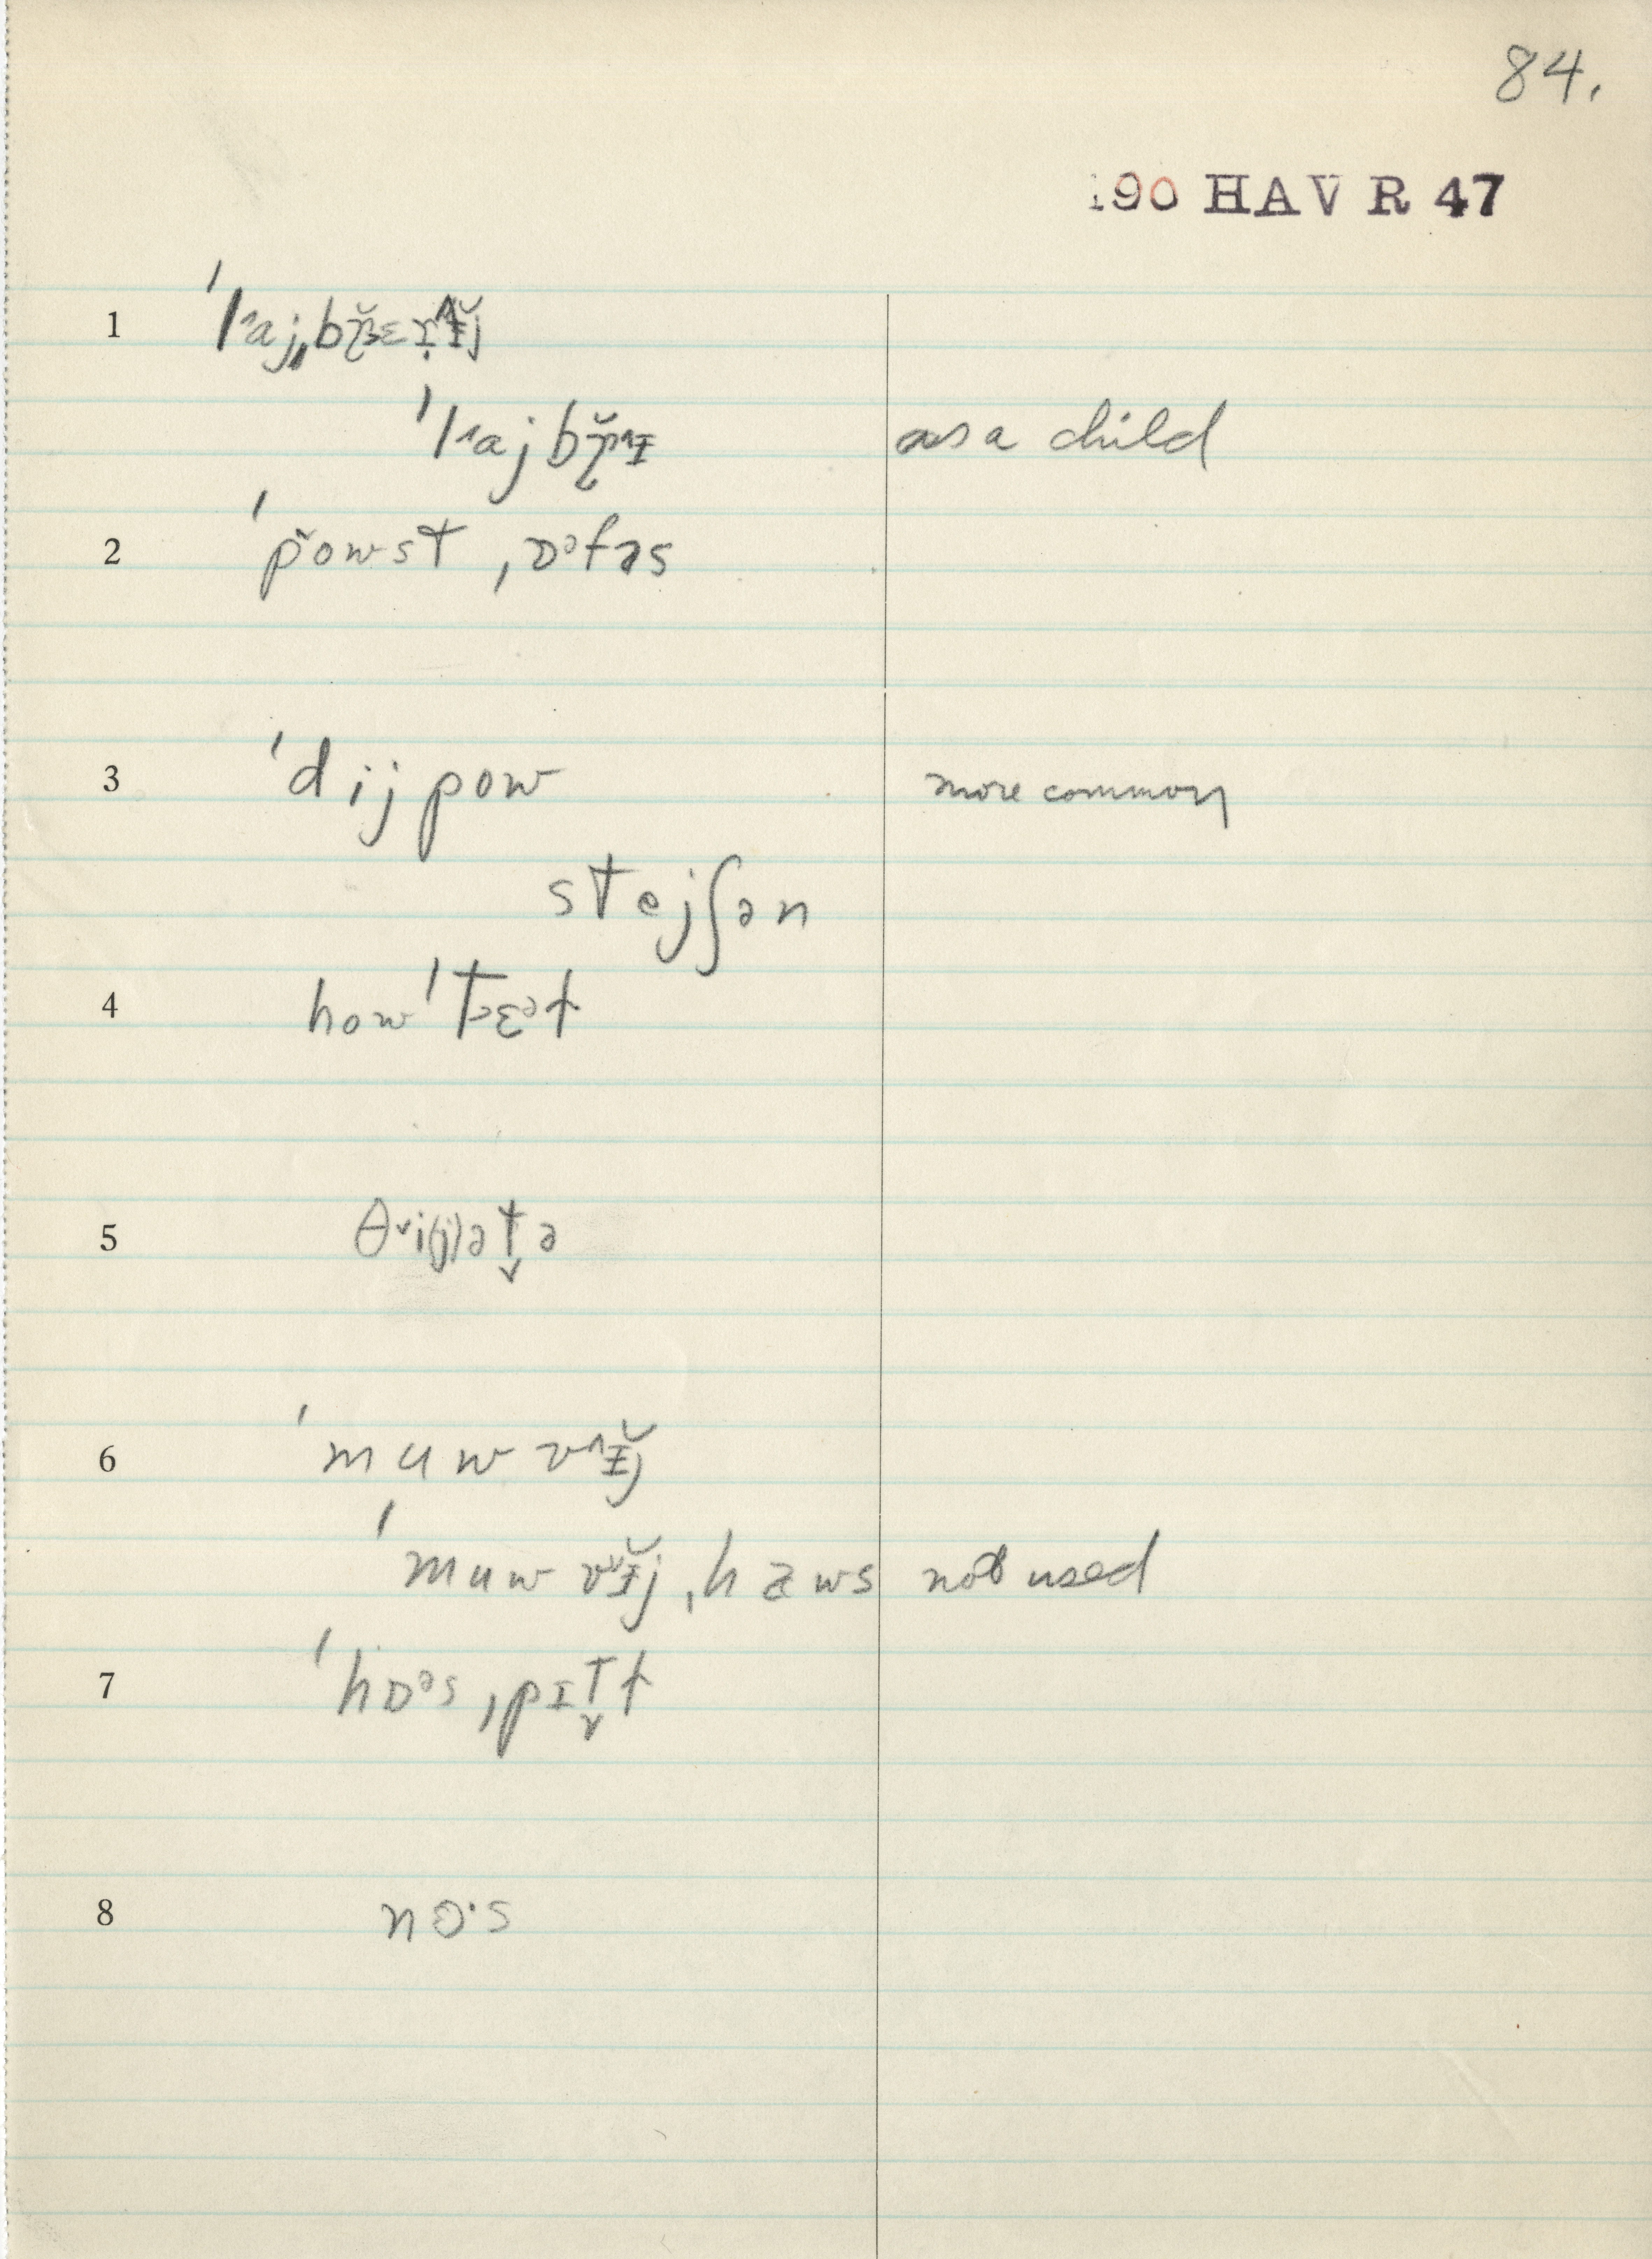 84.
190 HAV R 47
1
ˈlˆajbɽ̆ˆɪ as a child
2 ˈp̌owst ˌɒᵊfəs
3 ˈdijpow more common
stejʃən
4 howˈtɛᵊt
5 θˇi(j)ət̬ə
6 ˈmuwvˆɪ̆j
ˈmuwvˇɪ̆j ˌhaws not used
7 ˈhɒᵊsˌpɪt̬ɫ
8 nɒ·s